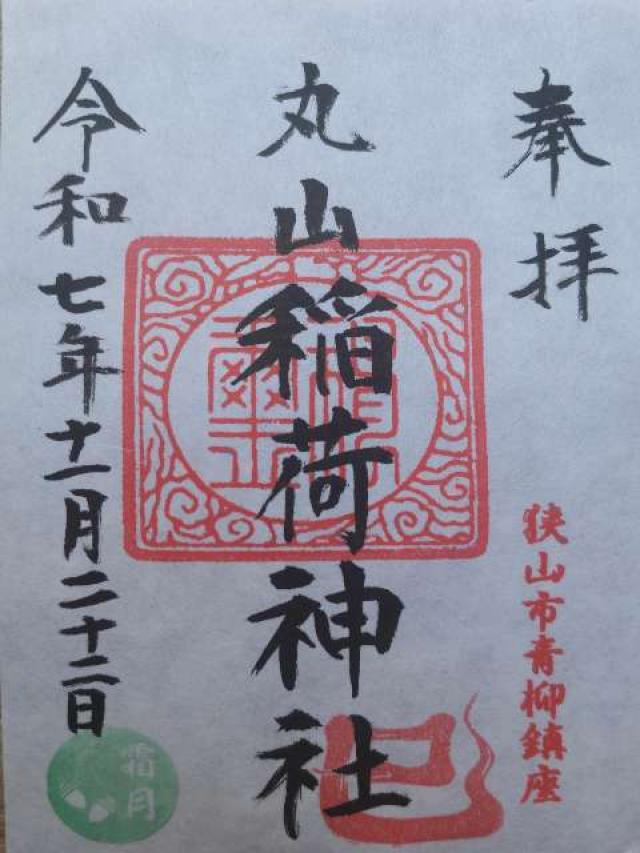 奉拝
狭山市青柳鎮座
丸山稲荷神社
巳
令和七年十一月二十二日
霜月